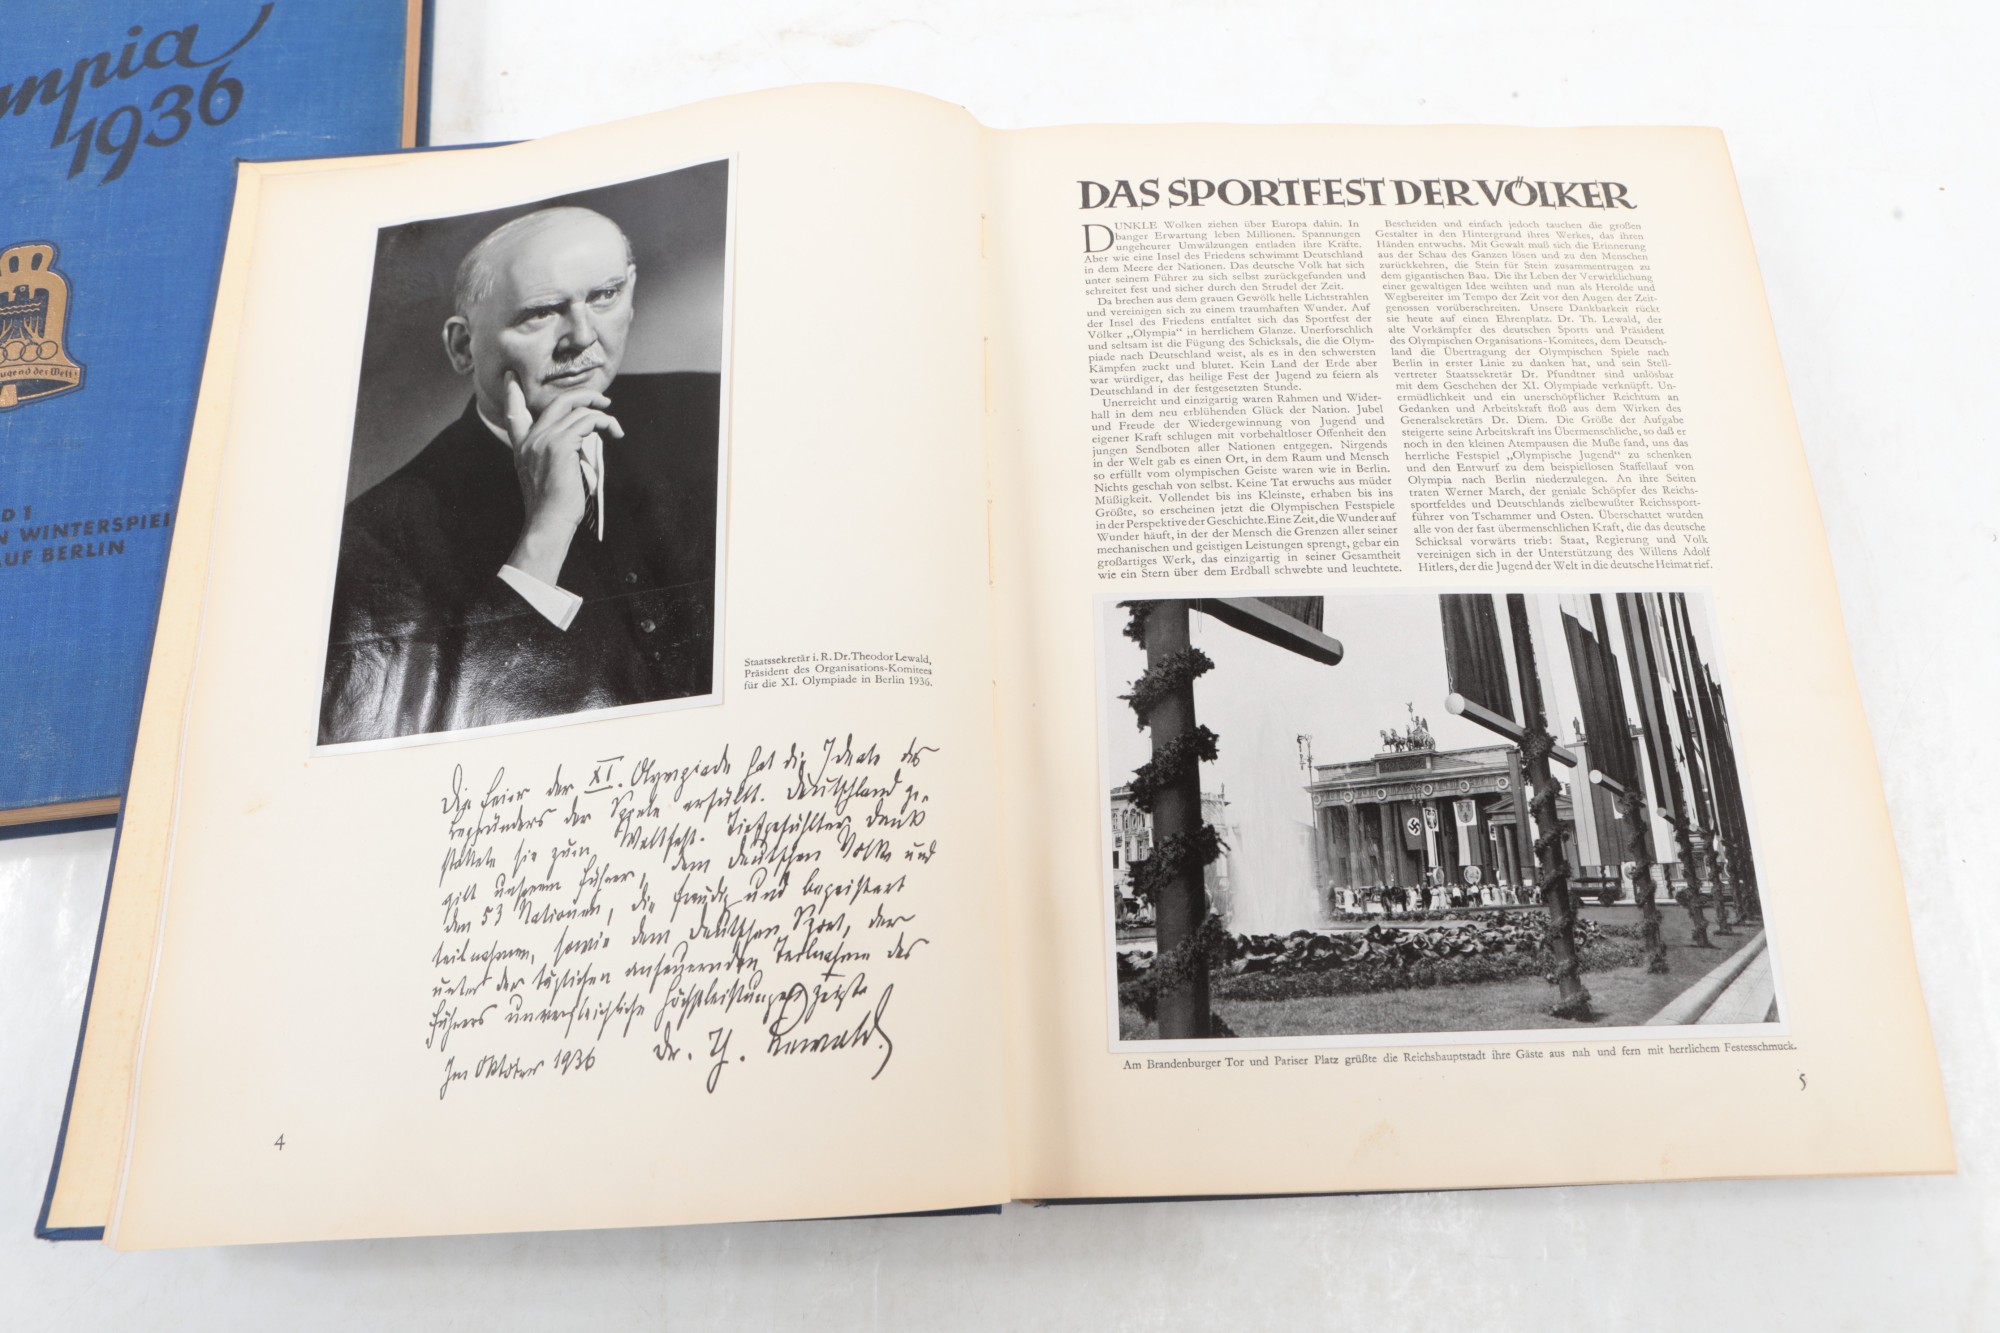 1936
Jugend der Welt!
D 1
N WINTERSPIEL
AUF BERLIN
Staatssekretär i. R. Dr. Theodor Lewald,
Präsident des Organisations-Komitees
für die XI. Olympiade in Berlin 1936.
Die Feier der XI. Olympiade hat die Ideale des
Begründers der Spiele erfüllt. Deutschland ge-
staltete sie zum Weltfest. Tiefgefühlter Dank
gilt unserem Führer, dem deutschen Volke und
den 53 Nationen, die freudig und begeistert
teilnahmen, sowie dem deutschen Sport, der
unter der täglichen anfeuernden Teilnahme des
Führers unvergleichliche Höchstleistungen zeigte
Im Oktober 1936 Dr. Th. Lewald.
4
DAS SPORTFEST DER VÖLKER
DUNKLE Wolken ziehen über Europa dahin. In
banger Erwartung leben Millionen. Spannungen
ungeheurer Umwälzungen entladen ihre Kräfte.
Aber wie eine Insel des Friedens schwimmt Deutschland
in dem Meere der Nationen. Das deutsche Volk hat sich
unter seinem Führer zu sich selbst zurückgefunden und
schreitet fest und sicher durch den Strudel der Zeit.
Da brechen aus dem grauen Gewölk helle Lichtstrahlen
und vereinigen sich zu einem traumhaften Wunder. Auf
der Insel des Friedens entfaltet sich das Sportfest der
Völker „Olympia“ in herrlichem Glanze. Unerforschlich
und seltsam ist die Fügung des Schicksals, die die Olym-
piade nach Deutschland weist, als es in den schwersten
Kämpfen zuckt und blutet. Kein Land der Erde aber
war würdiger, das heilige Fest der Jugend zu feiern als
Deutschland in der festgesetzten Stunde.
Unerreicht und einzigartig waren Rahmen und Wider-
hall in dem neu erblühenden Glück der Nation. Jubel
und Freude der Wiedergewinnung von Jugend und
eigener Kraft schlugen mit vorbehaltloser Offenheit den
jungen Sendboten aller Nationen entgegen. Nirgends
in der Welt gab es einen Ort, in dem Raum und Mensch
so erfüllt vom olympischen Geiste waren wie in Berlin.
Nichts geschah von selbst. Keine Tat erwuchs aus müder
Müßigkeit. Vollendet bis ins Kleinste, erhaben bis ins
Größte, so erscheinen jetzt die Olympischen Festspiele
in der Perspektive der Geschichte. Eine Zeit, die Wunder auf
Wunder häuft, in der der Mensch die Grenzen aller seiner
mechanischen und geistigen Leistungen sprengt, gebar ein
großartiges Werk, das einzigartig in seiner Gesamtheit
wie ein Stern über dem Erdball schwebte und leuchtete.
Bescheiden und einfach jedoch tauchen die großen
Gestalter in den Hintergrund ihres Werkes, das ihren
Händen entwuchs. Mit Gewalt muß sich die Erinnerung
aus der Schau des Ganzen lösen und zu den Menschen
zurückkehren, die Stein für Stein zusammentrugen zu
dem gigantischen Bau. Die ihr Leben der Verwirklichung
einer gewaltigen Idee weihten und nun als Herolde und
Wegbereiter im Tempo der Zeit vor den Augen der Zeit-
genossen vorüberschreiten. Unsere Dankbarkeit rückt
sie heute auf einen Ehrenplatz. Dr. Th. Lewald, der
alte Vorkämpfer des deutschen Sports und Präsident
des Olympischen Organisations-Komitees, dem Deutsch-
land die Übertragung der Olympischen Spiele nach
Berlin in erster Linie zu danken hat, und sein Stell-
vertreter Staatssekretär Dr. Pfundtner sind unlösbar
mit dem Geschehen der XI. Olympiade verknüpft. Un-
ermüdlichkeit und ein unerschöpflicher Reichtum an
Gedanken und Arbeitskraft floß aus dem Wirken des
Generalsekretärs Dr. Diem. Die Größe der Aufgabe
steigerte seine Arbeitskraft ins Übermenschliche, so daß er
noch in den kleinen Atempausen die Muße fand, uns das
herrliche Festspiel „Olympische Jugend“ zu schenken
und den Entwurf zu dem beispiellosen Staffellauf von
Olympia nach Berlin niederzulegen. An ihre Seiten
traten Werner March, der geniale Schöpfer des Reichs-
sportfeldes und Deutschlands zielbewußter Reichssport-
führer von Tschammer und Osten. Überschattet wurden
alle von der fast übermenschlichen Kraft, die das deutsche
Schicksal vorwärts trieb: Staat, Regierung und Volk
vereinigen sich in der Unterstützung des Willens Adolf
Hitlers, der die Jugend der Welt in die deutsche Heimat rief.
Am Brandenburger Tor und Pariser Platz grüßte die Reichshauptstadt ihre Gäste aus nah und fern mit herrlichem Festesschmuck.
5